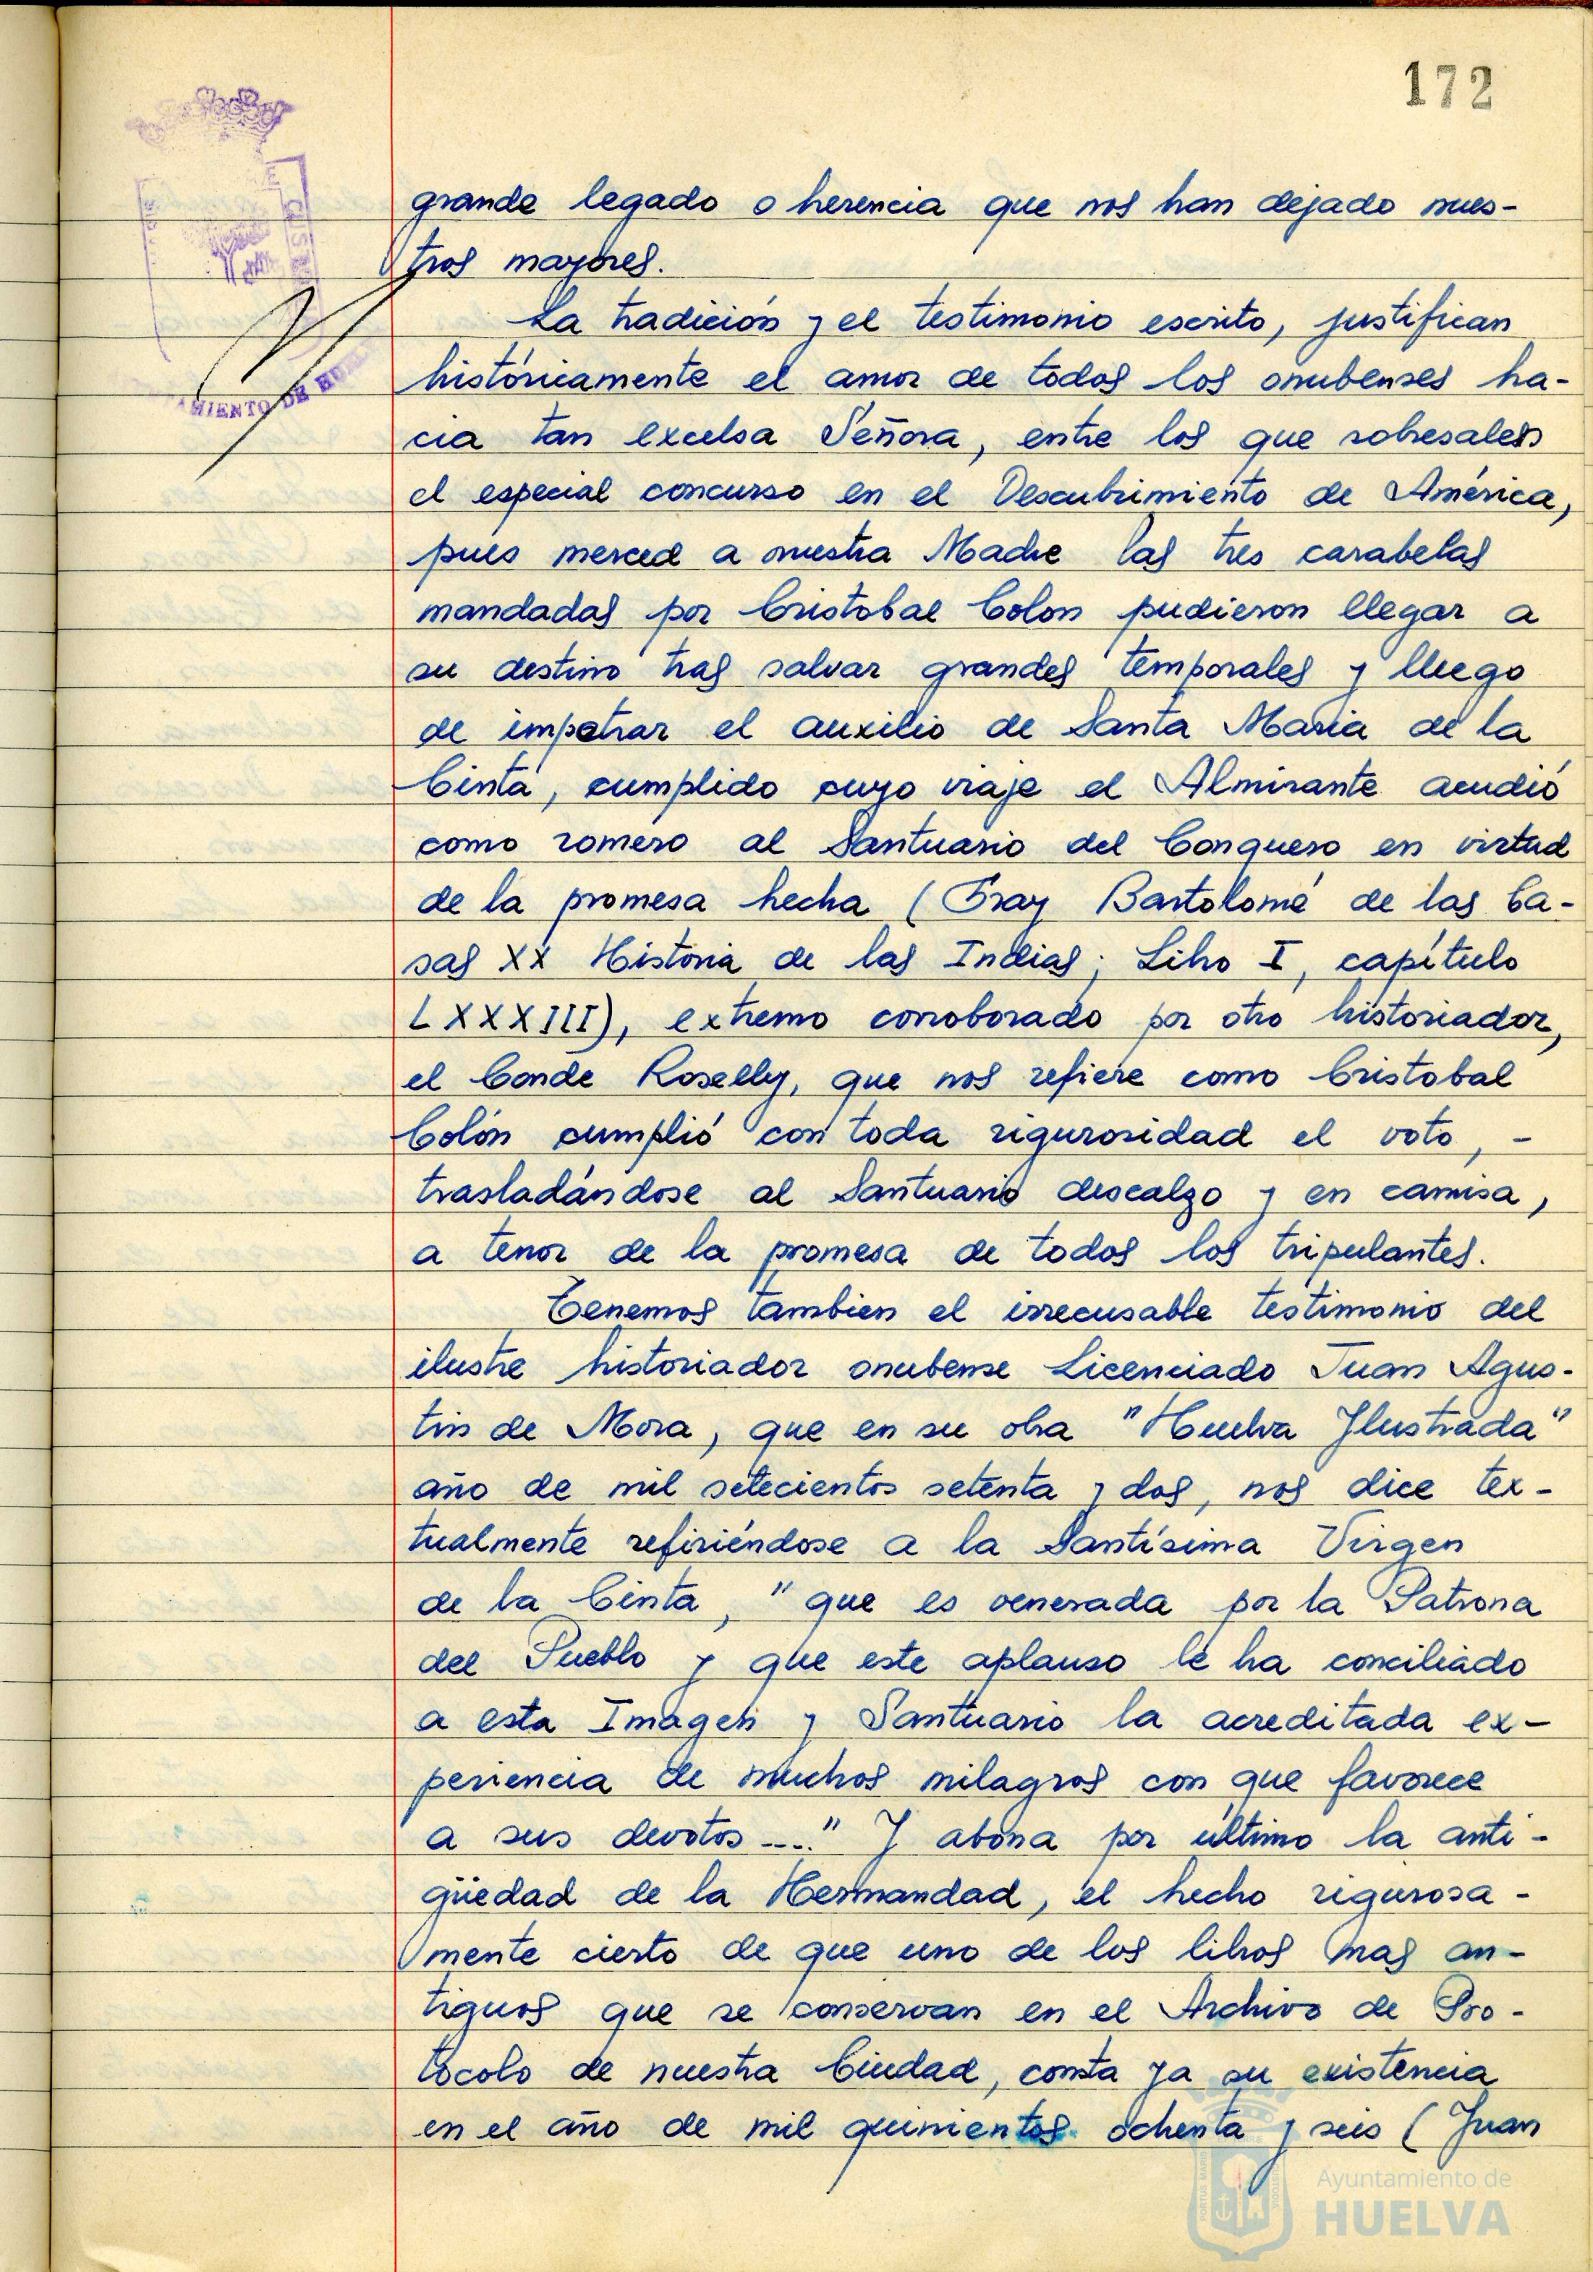 172
grande legado o herencia que nos han dejado nues-
tros mayores.
La tradición y el testimonio escrito, justifican
históricamente el amor de todos los onubenses ha-
cia tan excelsa Señora, entre los que sobresalen
el especial concurso en el Descubrimiento de América,
pues merced a nuestra Madre las tres carabelas
mandadas por Cristobal Colon pudieron llegar a
su destino tras salvar grandes temporales y luego
de impetrar el auxilio de Santa Maria de la
Cinta, cumplido cuyo viaje el Almirante acudió
como romero al Santuario del Conquero en virtud
de la promesa hecha (Fray Bartolomé de las Ca-
sas XX Historia de las Indias; Libro I, capítulo
LXXXIII), extremo corroborado por otro historiador,
el Conde Roselly, que nos refiere como Cristobal
Colón cumplió con toda rigurosidad el voto, -
trasladándose al Santuario descalzo y en camisa,
a tenor de la promesa de todos los tripulantes.
Tenemos tambien el irrecusable testimonio del
ilustre historiador onubense Licenciado Juan Agus-
tin de Mora, que en su obra "Huelva Ilustrada"
año de mil setecientos setenta y dos, nos dice tex-
tualmente refiriéndose a la Santísima Virgen
de la Cinta, "que es venerada por la Patrona
del Pueblo y que este aplauso le ha conciliado
a esta Imagen y Santuario la acreditada ex-
periencia de muchos milagros con que favorece
a sus devotos ...." Y abona por último la anti-
güedad de la Hermandad, el hecho rigurosa-
mente cierto de que uno de los libros mas an-
tiguos que se conservan en el Archivo de Pro-
tocolo de nuestra Ciudad, consta ya su existencia
en el año de mil quinientos ochenta y seis (Juan
AMIENTO DE HUEL
Ayuntamiento de
HUELVA